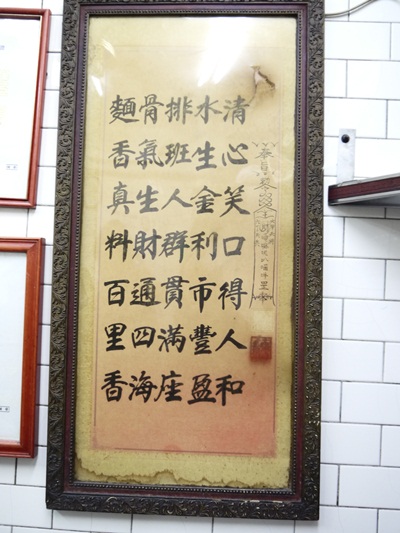 清心笑口得人和
水生金利市豐盈
排班人群貫滿座
骨氣生財通四海
麵香真料百里香